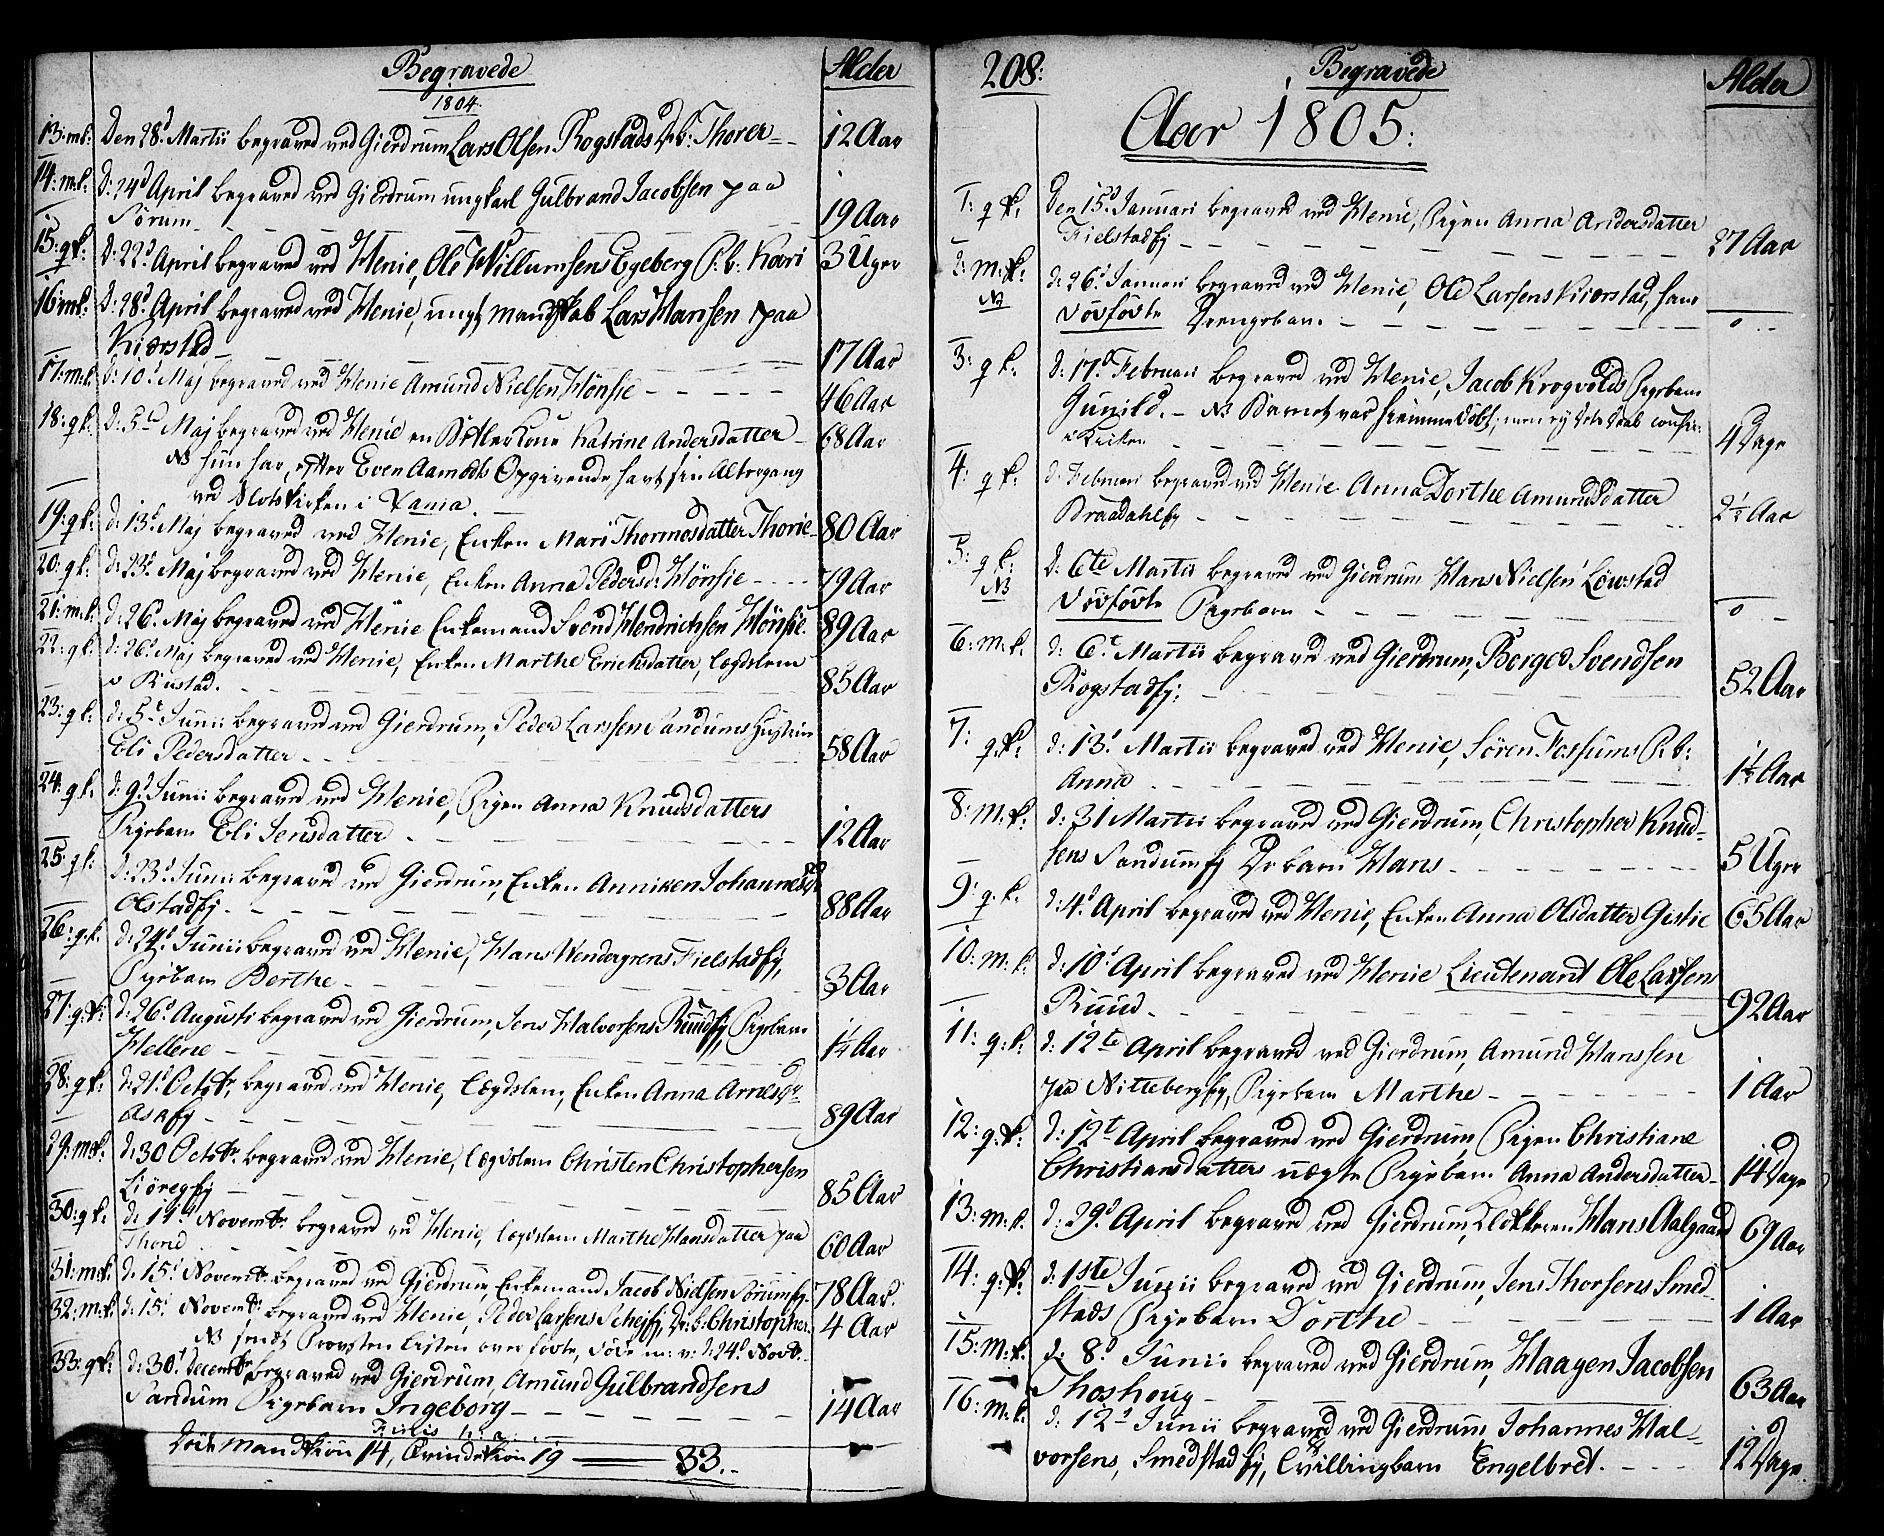 Begravede
Alder
1804.
13: mk: Den 28d Martii begraved ved Gierdrum Lars Olsen Rogstads D: b: Thorer 12 Aar
14: m.k: d: 24d April begraved ved Gierdrum ungkarl Gulbrand Jacobsen paa
Sørum 19 Aar
15: qk: d: 22d April begraved ved Henie, Ole Willumsens Egeberg P: b: Kari 3 Uger
16: mk: d: 28d April begraved ved Henie, ungt mandskab Lars Hansen paa
Kiørstad 17 Aar
17: m.k: d: 10d Maj begraved ved Henie Amund Nielsen Hønsie 46 Aar
18: qk: d: 5te Maj begraved ved Henie en Betlerkone Katrine Andersdatter 68 Aar
NB hun har, efter Even Aamodts Opgivende havt sin Altergang
ved Slotskirken i Xania.
19: qk: d: 13d Maj begraved ved Henie, Enken Mari Thormosdatter Thorie 80 Aar
20: qk: d: 23d Maj begraved ved Henie, Enken Anna Pedersd: Hønsie 79 Aar
21: m.k: d: 26d Maj begraved ved Henie Enkemand Svend Hendrichsen Hønsie 89 Aar
22: qk: d: 26d Maj begraved ved Henie, Enken Marthe Erichsdatter, Lægdslem
v Rustad. 85 Aar
23: qk: d: 5t Junii begraved ved Gierdrum, Peder Larssen Sandums Hustru
Eli Pedersdatter 58 Aar
24: qk: d: 9d Junii begraved ved Henie, Pigen Anna Knudsdatters
Pigebarn Eli Jensdatter 12 Aar
25: qk: d: 23d Junii begraved ved Gierdrum, Enken Anniken Johannesdr
Olstadej. 88 Aar
26: qk: d: 24d Junii begraved ved Henie, Hans Wendergrens Fielstadej,
Pigebarn Berthe 3 Aar
27: qk: d: 26d Augusti begraved ved Gierdrum, Jens Halvorsens Ruudej Pigebarn
Hellene 1¼ Aar
28: qk: d: 21d Octobr, begraved ved Henie, Lægdslem, Enken Anna Arnesdr
Asakej 89 Aar
29: mk: d: 30 Octobr. begraved ved Henie, Lægdslem Christen Christophersen
Liøregej 85 Aar
30: qk: d: 14d Novembr. begraved ved Henie, Lægdslem Marthe Hansdatter paa
Thorie 60 Aar
31: mk: d: 15d Novembr. begraved ved Gjerdrum, Enkemand Jacob Nielsen Sørumej. 78 Aar.
32: m.k: d: 15d Novembr: begraved ved Henie, Peder Larsens Schejej, Dr: b: Christopher 4 Aar
NB sendt Provsten Listen over fødte, døde m: v: d: 24d Novbr.
33: qk: d: 30d Decembr. begraved ved Gierdrum, Amund Gulbrandsens
Sandum Pigebarn Ingeborg 14 Aar
Døde Mandkiøn 14, Qvindekiøn 19 — 33.
208:
Begravede
Alder
Aar 1805:
1: qk: Den 15d Januari begraved ved Henie, Pigen Anna Andersdatter
Fielstadej 27 Aar
2: m.k: d: 26d Januari begraved ved Henie, Ole Larsens Kiørstad, hans
NB dødfødte Drengebarn. 0
3: qk: d: 17d Februari begraved ved Henie, Jacob Krogvolds Pigebarn
Gunild. - NB Barnet var hiemmedøbt, men ej dets Daab confir:
i Kirken 4 Dage
4: qk: d: Februari begraved ved Henie Anna Dorthe Amundsdatter
Braadahlej 2½ Aar
5: qk: d: 6te Martii begraved ved Gierdrum Hans Nielsen Løwstad
NB dødfødte Pigebarn 0
6: m.k: d: 6t Martii begraved ved Gierdrum, Borged Svendsen
Rogstadej: 52 Aar
7: qk: d: 13d Martii begraved ved Henie, Søren Fossums P: b:
Anna 1½ Aar
8: m.k: d: 31 Martii begraved ved Gierdrum, Christopher Knud-
sens Sandumej Dr barn Hans 5 Uger
9: q.k: d: 4d April begraved ved Henie, Enken Anna Olsdatter Gistie 65 Aar
10: m.k: d: 10d April begraved ved Henie Lieutenant Ole Larsen
Ruud 92 Aar
11: q.k: d: 12te April begraved ved Gierdrum, Amund Hanssen
paa Nittebergej, Pigebarn Marthe 1 Aar
12: q.k: d: 12t April begraved ved Gierdrum, Pigen Christiane
Christiansdatters uægte Pigebarn Anna Andersdatter 14 Dage
13: m.k: d: 29d April begraved ved Gierdrum, Klokkeren Hans Aalgaard 69 Aar
14: q.k: d: 1ste Junii begraved ved Gierdrum, Jens Thorsens Smed-
stads Pigebarn Dorthe 1 Aar
15: m.k: d: 8d Junii begraved ved Gierdrum, Haagen Jacobsen
Thoshoug 63 Aar
16: m.k: d: 12d Junii begraved ved Gierdrum Johannes Hal-
vorsens, Smedstad ej, Tvillingbarn Engelbret. 12 Dage